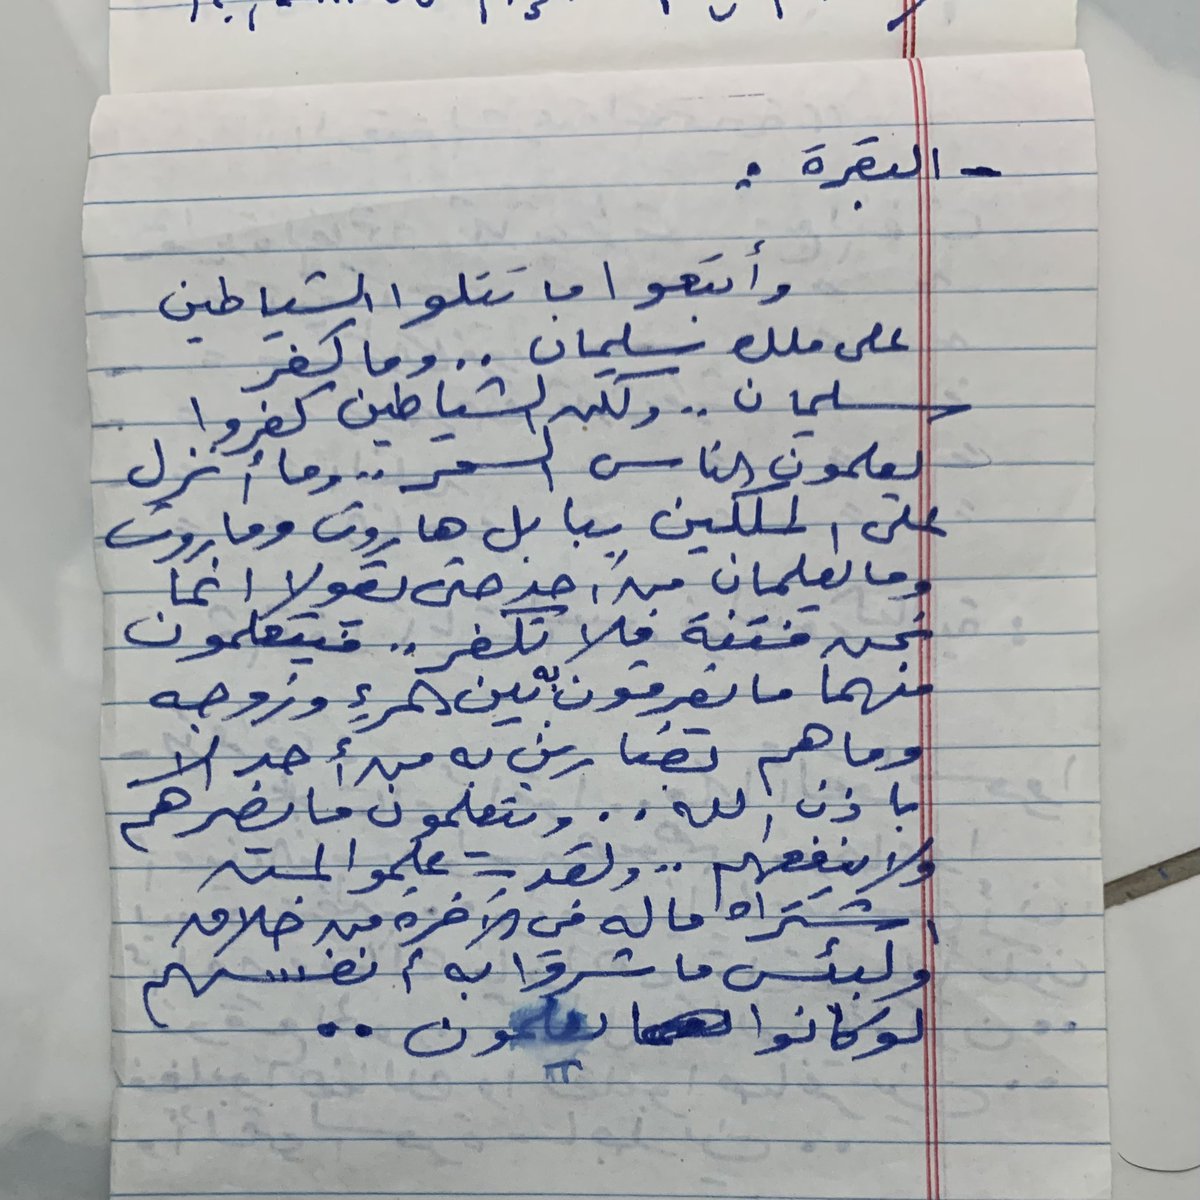 - البقرة :
وأتبعوا ما تتلوا الشياطين
على ملك سليمان .. وما كفر
سليمان .. ولكن الشياطين كفروا
يعلمون الناس السحر .. وما أنزل
على الملكين ببابل هاروت وماروت
وما يعلمان من أحد حتى يقولا انما
نحن فتنة فلا تكفر .. فيتعلمون
منهما ما يفرقون به بين المرء وزوجه
وما هم بضارين به من أحد الا
باذن الله .. ويتعلمون ما يضرهم
ولا ينفعهم .. ولقد علموا لمن
اشتراه ماله فى الآخرة من خلاق
ولبئس ما شروا به أنفسهم
لو كانوا يعلمون ..